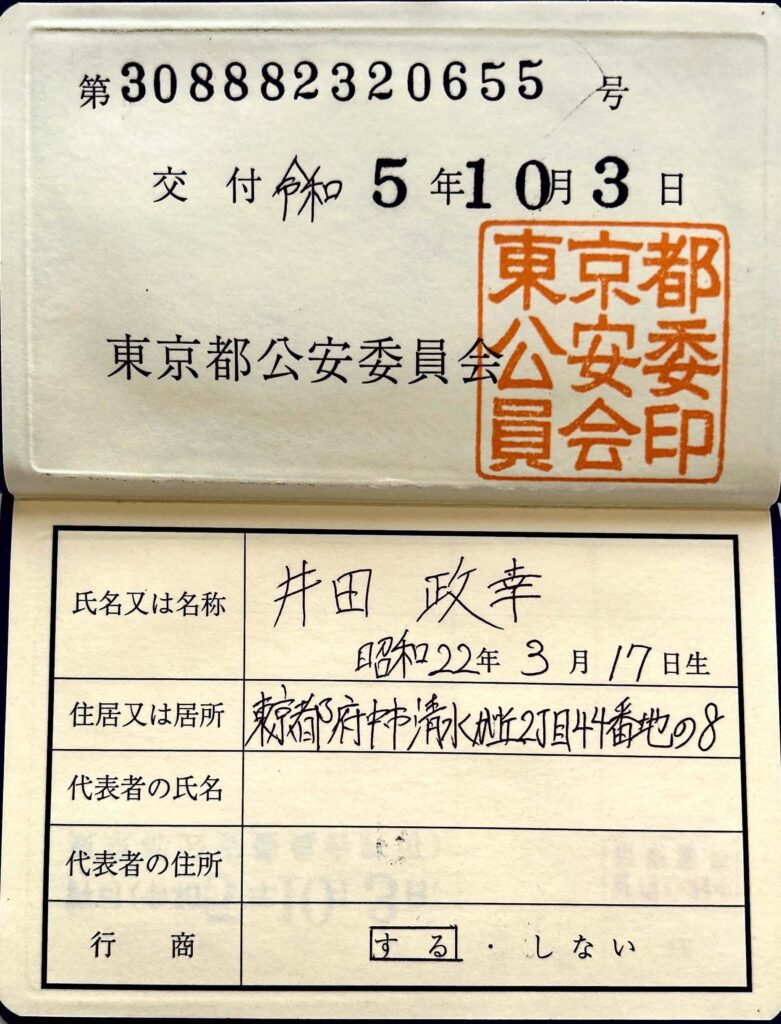 第308882320655号
交付 令和5年10月3日
東京都公安委員会
東京都
公安委
員会印
氏名又は名称 井田 政幸
昭和22年3月17日生
住居又は居所 東京都府中市清水が丘2丁目44番地の8
代表者の氏名
代表者の住所
行商 する・しない